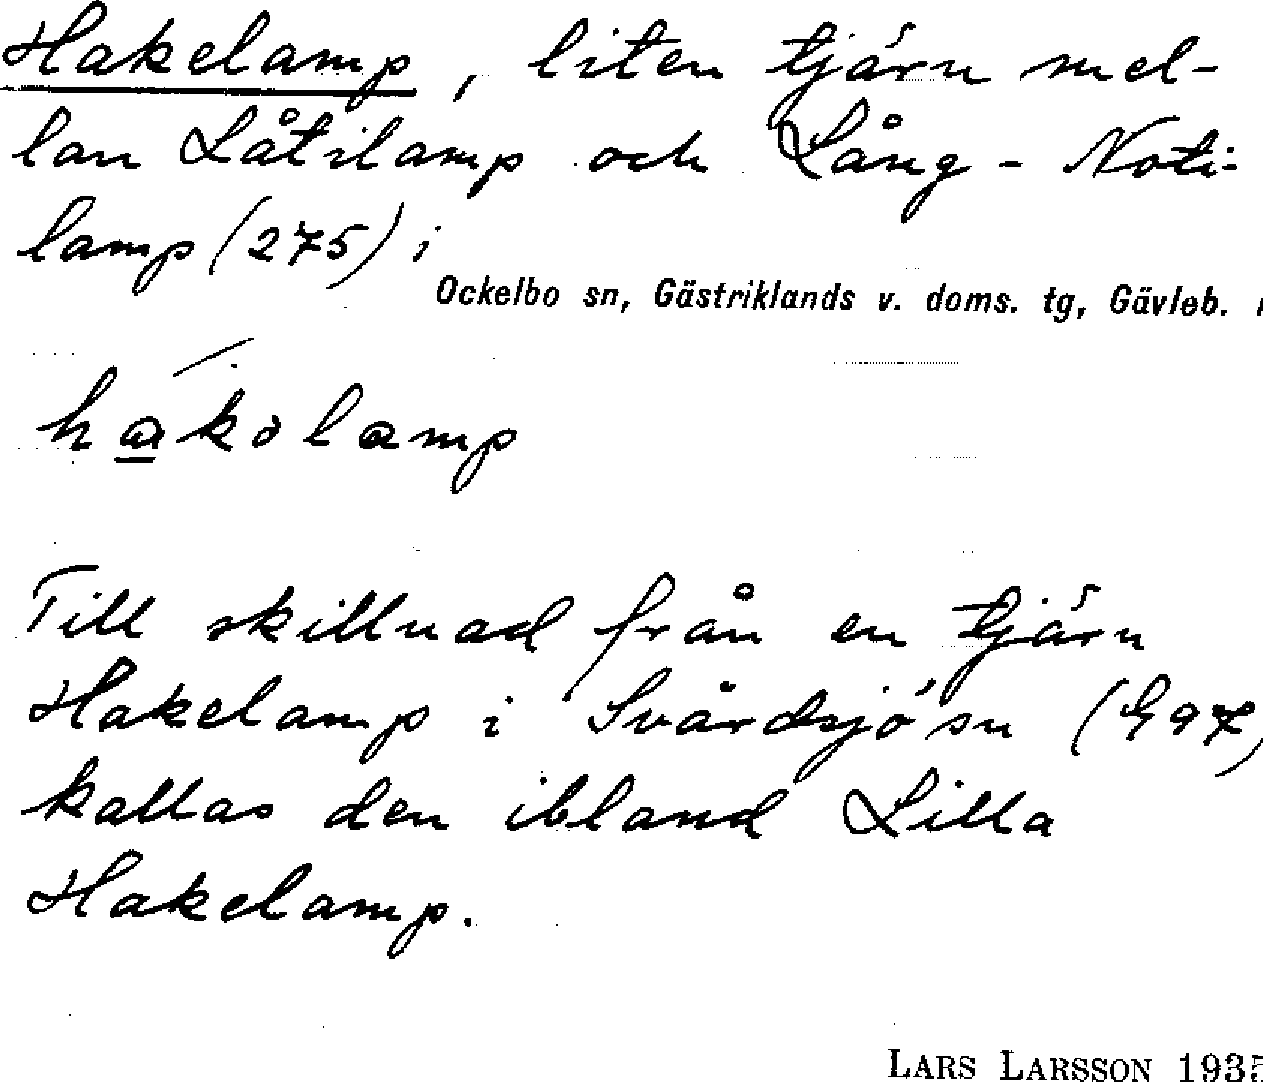 Hakelamp, liten tjärn mel-
lan Låtilamp och Lång-Noti-
lamp (275) i
Ockelbo sn, Gästriklands v. doms. tg, Gävleb.
hakolamp
Till skillnad från en tjärn
Hakelamp i Svärdsjö sn (G97)
kallas den ibland Lilla
Hakelamp.
LARS LARSSON 1935